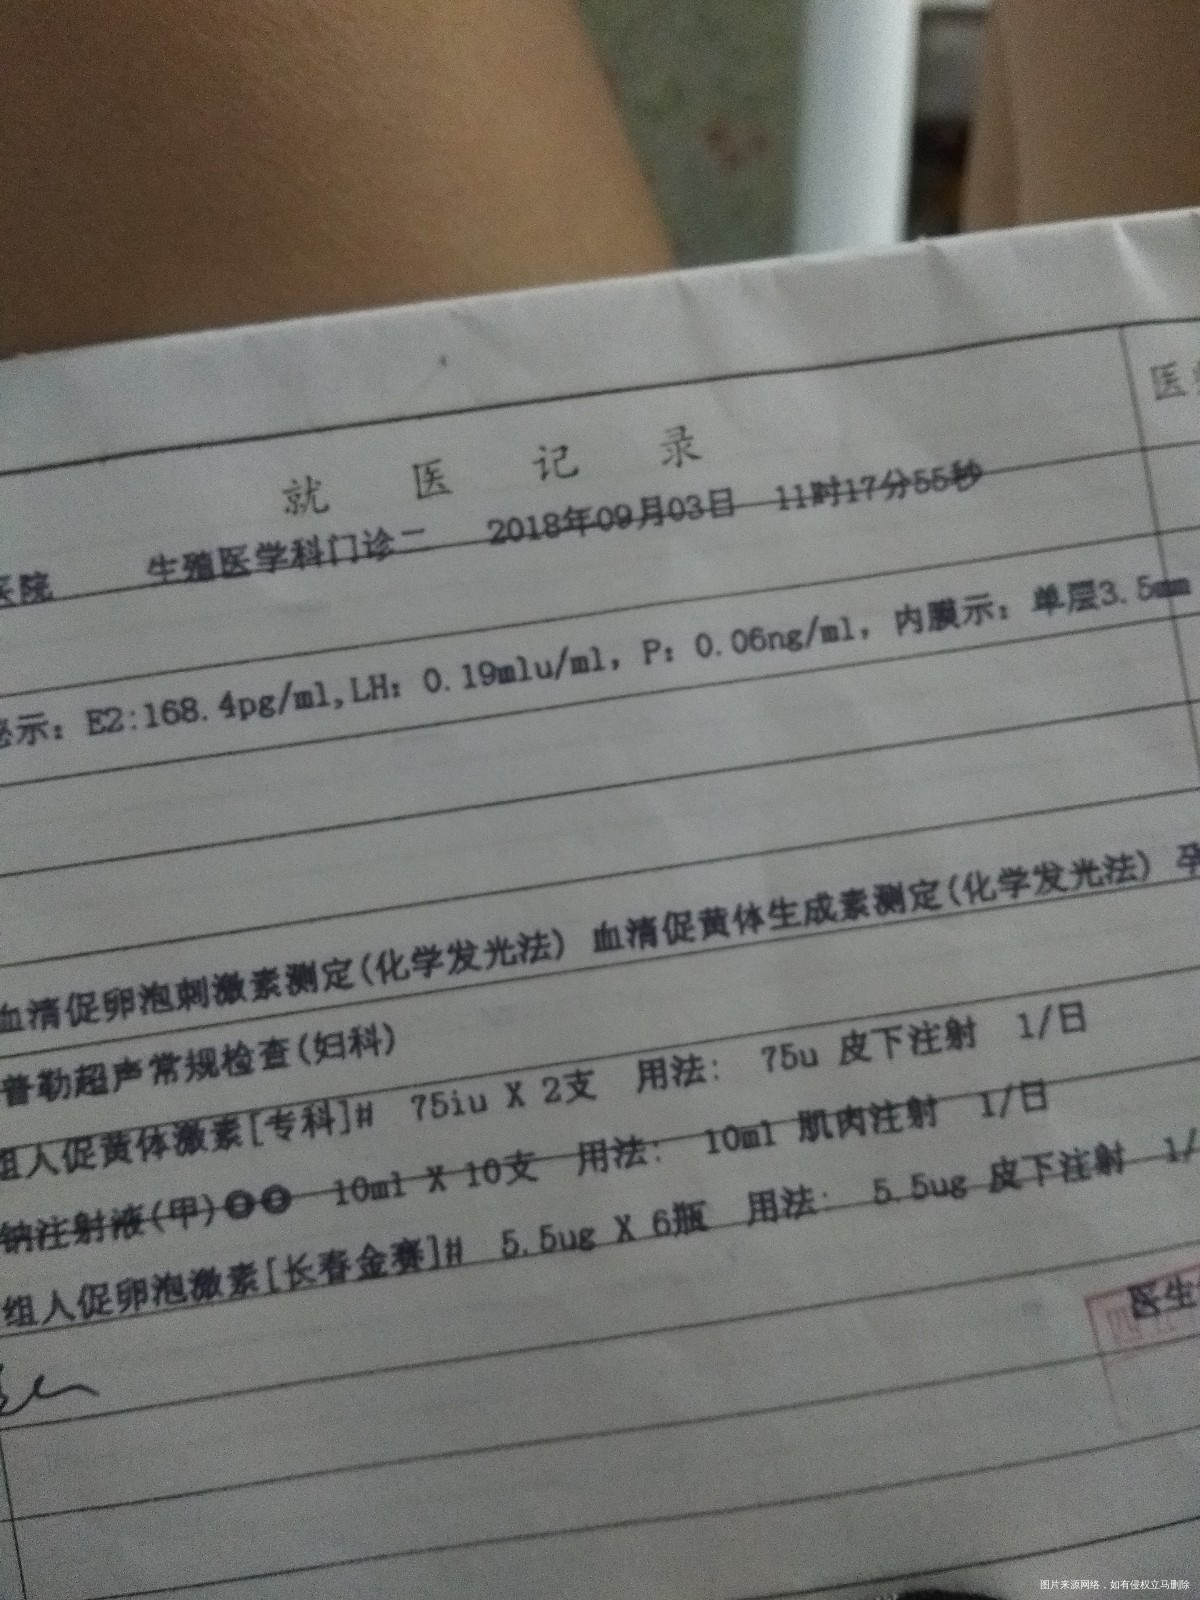 就医记录
医
医院 生殖医学科门诊二 2018年09月03日 11时17分55秒
示：E2:168.4pg/ml,LH：0.19mlu/ml，P：0.06ng/ml，内膜示：单层3.5mm
血清促卵泡刺激素测定(化学发光法) 血清促黄体生成素测定(化学发光法) 孕
普勒超声常规检查(妇科)
组人促黄体激素[专科]# 75iu X 2支 用法： 75u 皮下注射 1/日
钠注射液(甲) 10ml X 10支 用法： 10ml 肌肉注射 1/日
组人促卵泡激素[长春金赛]# 5.5ug X 6瓶 用法： 5.5ug 皮下注射 1/
医生
图片来源网络，如有侵权立马删除